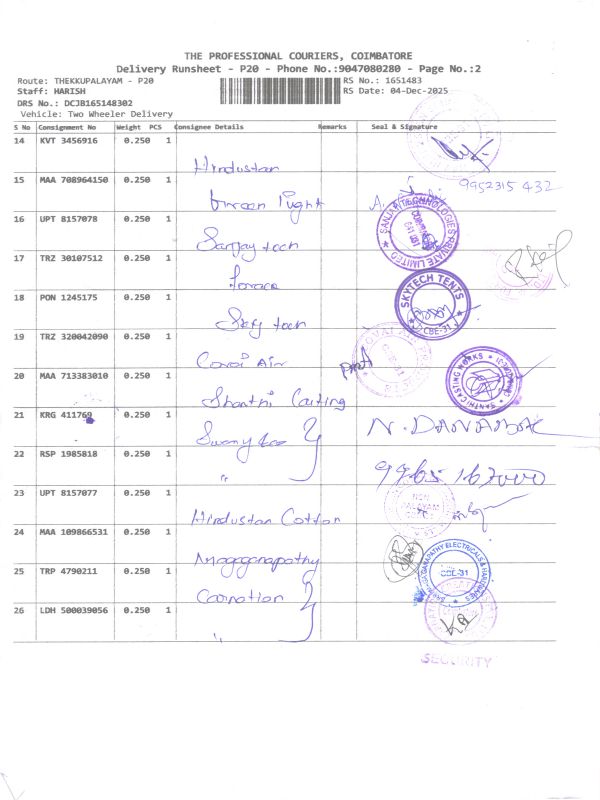 THE PROFESSIONAL COURIERS, COIMBATORE
Delivery Runsheet - P20 - Phone No.:9047080280 - Page No.:2
Route: THEKKUPALAYAM - P20
RS No.: 1651483
Staff: HARISH
RS Date: 04-Dec-2025
DRS No.: DCJB165148302
Vehicle: Two Wheeler Delivery
S No Consignment No Weight PCS Consignee Details Remarks Seal & Signature
14 KVT 3456916 0.250 1
Hindustan
15 MAA 708964150 0.250 1
9952315 432
16 UPT 8157078 0.250 1
Sanjay tech
SANJAY TECHNOLOGIES PRIVATE LIMITED
17 TRZ 30107512 0.250 1
18 PON 1245175 0.250 1
Sky tech
SKYTECH TENTS
CBE-31
19 TRZ 320042090 0.250 1
Covai Air
20 MAA 713383010 0.250 1
Shanthi Casting
SANTHI CASTING WORKS
21 KRG 411769 0.250 1
N. DANABAL
22 RSP 1985818 0.250 1
"
9965 167000
23 UPT 8157077 0.250 1
Hindustan Cotton
24 MAA 109866531 0.250 1
Magaganapathy
GANAPATHY ELECTRICALS & HARDWARES
CBE-31
25 TRP 4790211 0.250 1
Carnation
26 LDH 500039056 0.250 1
"
SECURITY